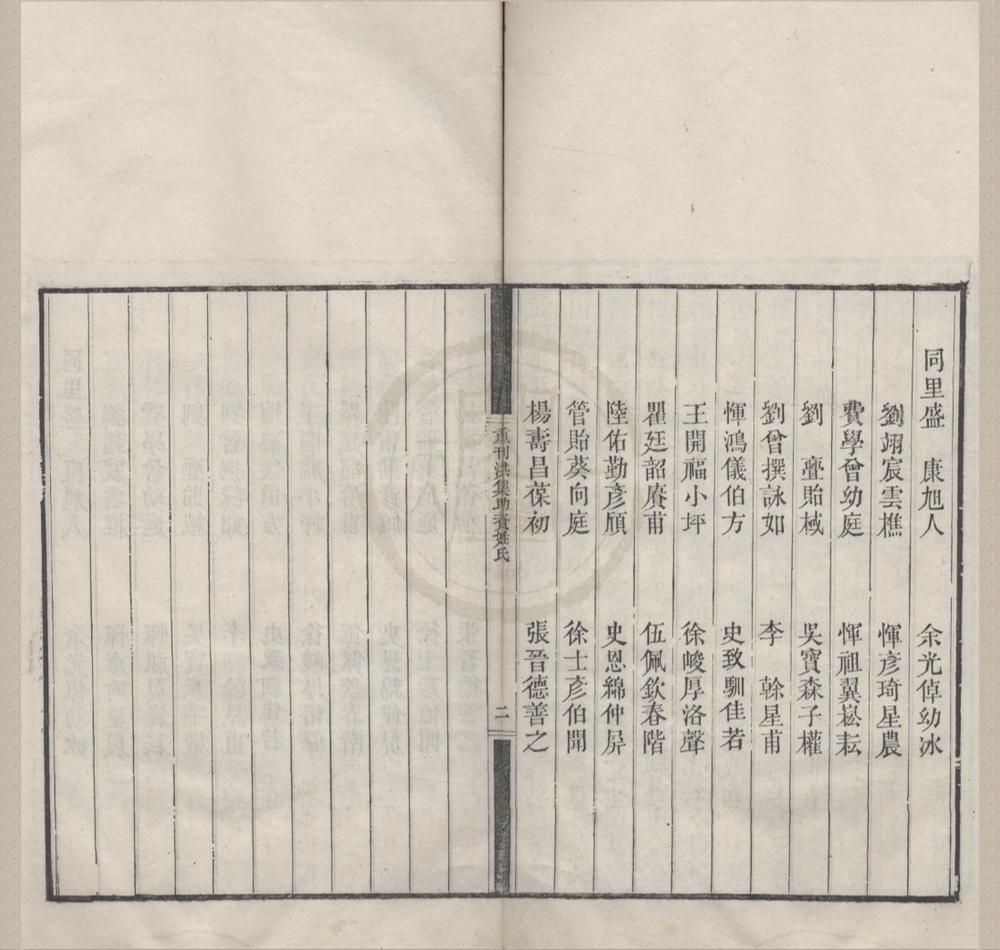 同里盛　康旭人　余光倬幼冰
劉翊宸雲樵　惲彥琦星農
費學曾幼庭　惲祖翼崧耘
劉　亹貽棫　吳寶森子權
劉曾撰詠如　李　榦星甫
惲鴻儀伯方　史致馴佳若
王開福小坪　徐峻厚洛聲
瞿廷韶賡甫　伍佩欽春階
陸佑勤彥頎　史恩綿仲屏
管貽葵向庭　徐士彥伯聞
楊壽昌葆初　張晉德善之
重刊洪集助貲姓氏　二